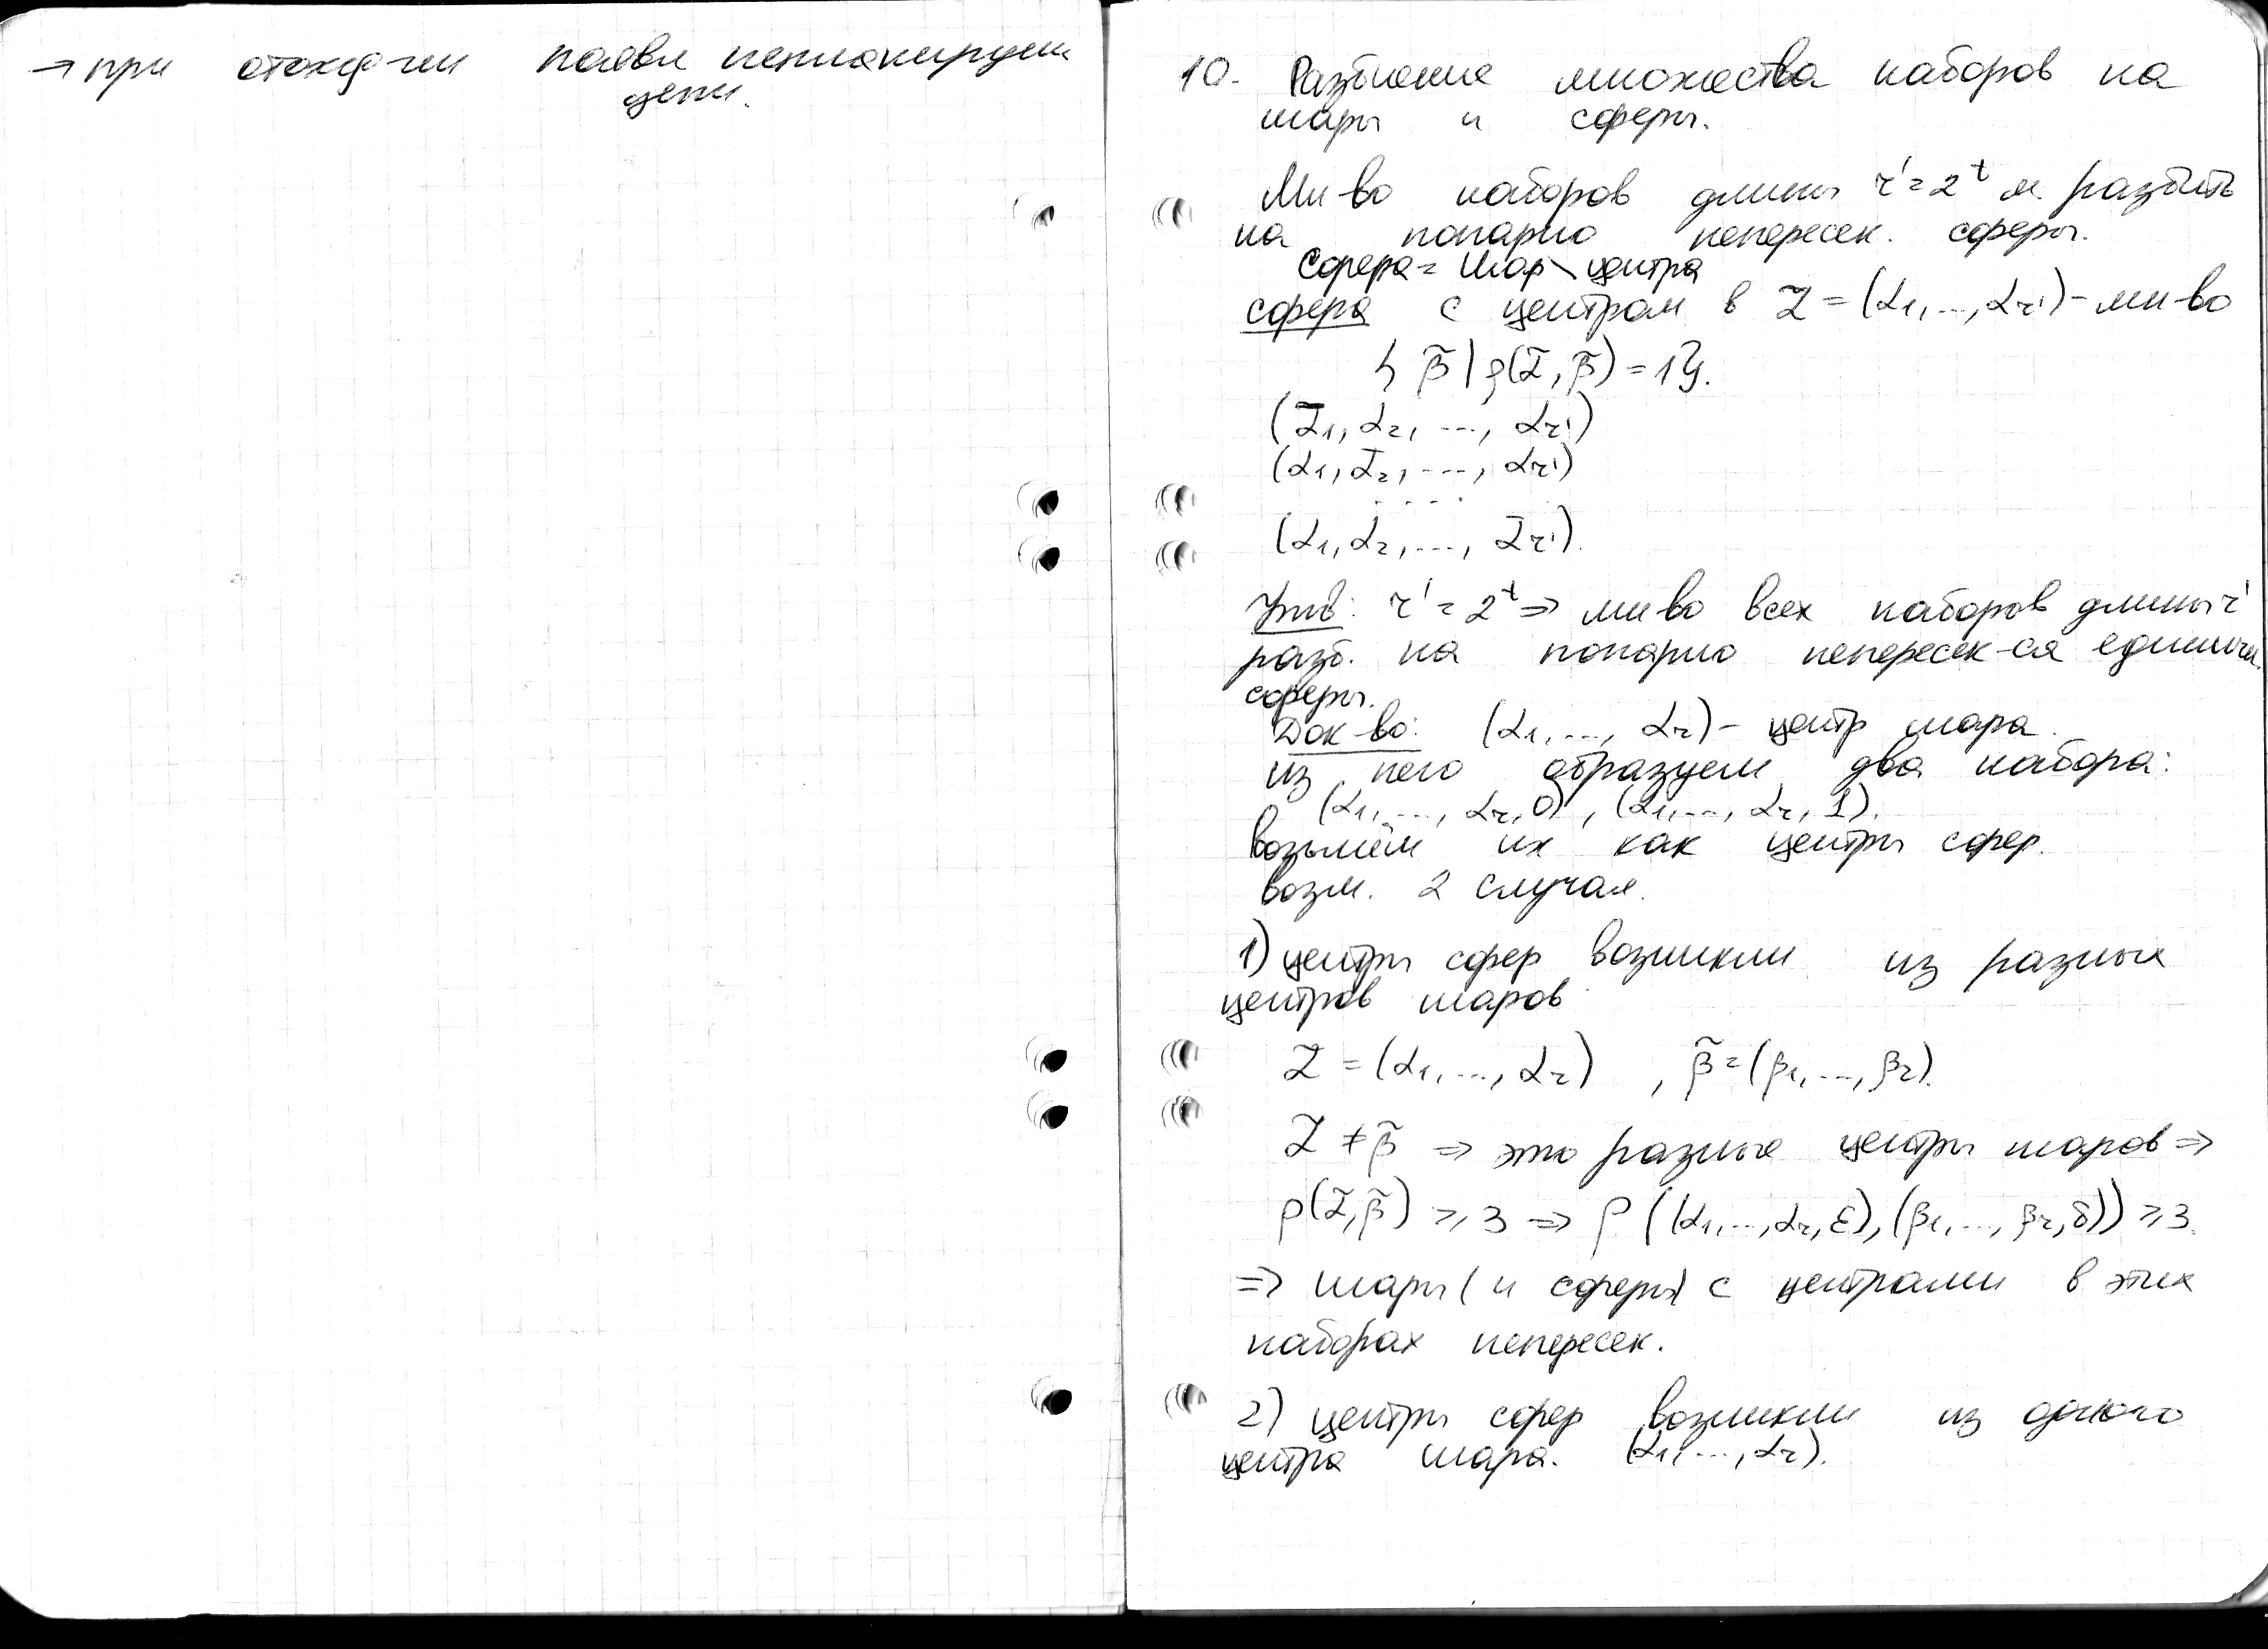 → при отожд-ии появл непланируем
цепи.
10. Разбиение множества наборов на
шары и сферы.
Мн-во наборов длины r'=2^t м. разбить
на попарно непересек. сферы.
Сфера = Шар \ центра
сфера с центром в α̃ = (α₁, ..., αr') - мн-во
{ β̃ | ρ(α̃, β̃) = 1 }.
(ᾱ₁, α₂, ..., αr')
(α₁, ᾱ₂, ..., αr')
. . . .
(α₁, α₂, ..., ᾱr').
Утв: r' = 2^t ⇒ мн-во всех наборов длины r'
разб. на попарно непересек-ся единичн.
сферы.
Док-во: (α₁, ..., αr) - центр шара.
из него образуем два набора:
(α₁, ..., αr, 0), (α₁, ..., αr, 1).
возьмём их как центры сфер.
возм. 2 случая.
1) центры сфер возникли из разных
центров шаров
α̃ = (α₁, ..., αr) , β̃ = (β₁, ..., βr).
α̃ ≠ β̃ ⇒ это разные центры шаров ⇒
ρ(α̃, β̃) ⩾ 3 ⇒ ρ((α₁, ..., αr, ε), (β₁, ..., βr, δ)) ⩾ 3.
⇒ шары (и сферы) с центрами в этих
наборах непересек.
2) центры сфер возникли из одного
центра шара. (α₁, ..., αr).